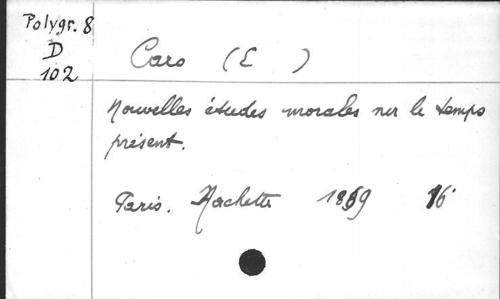 Polygr. 8
D
102
Caro (E )
Nouvelles études morales sur le temps
présent.
Paris. Hachette 1869 16°